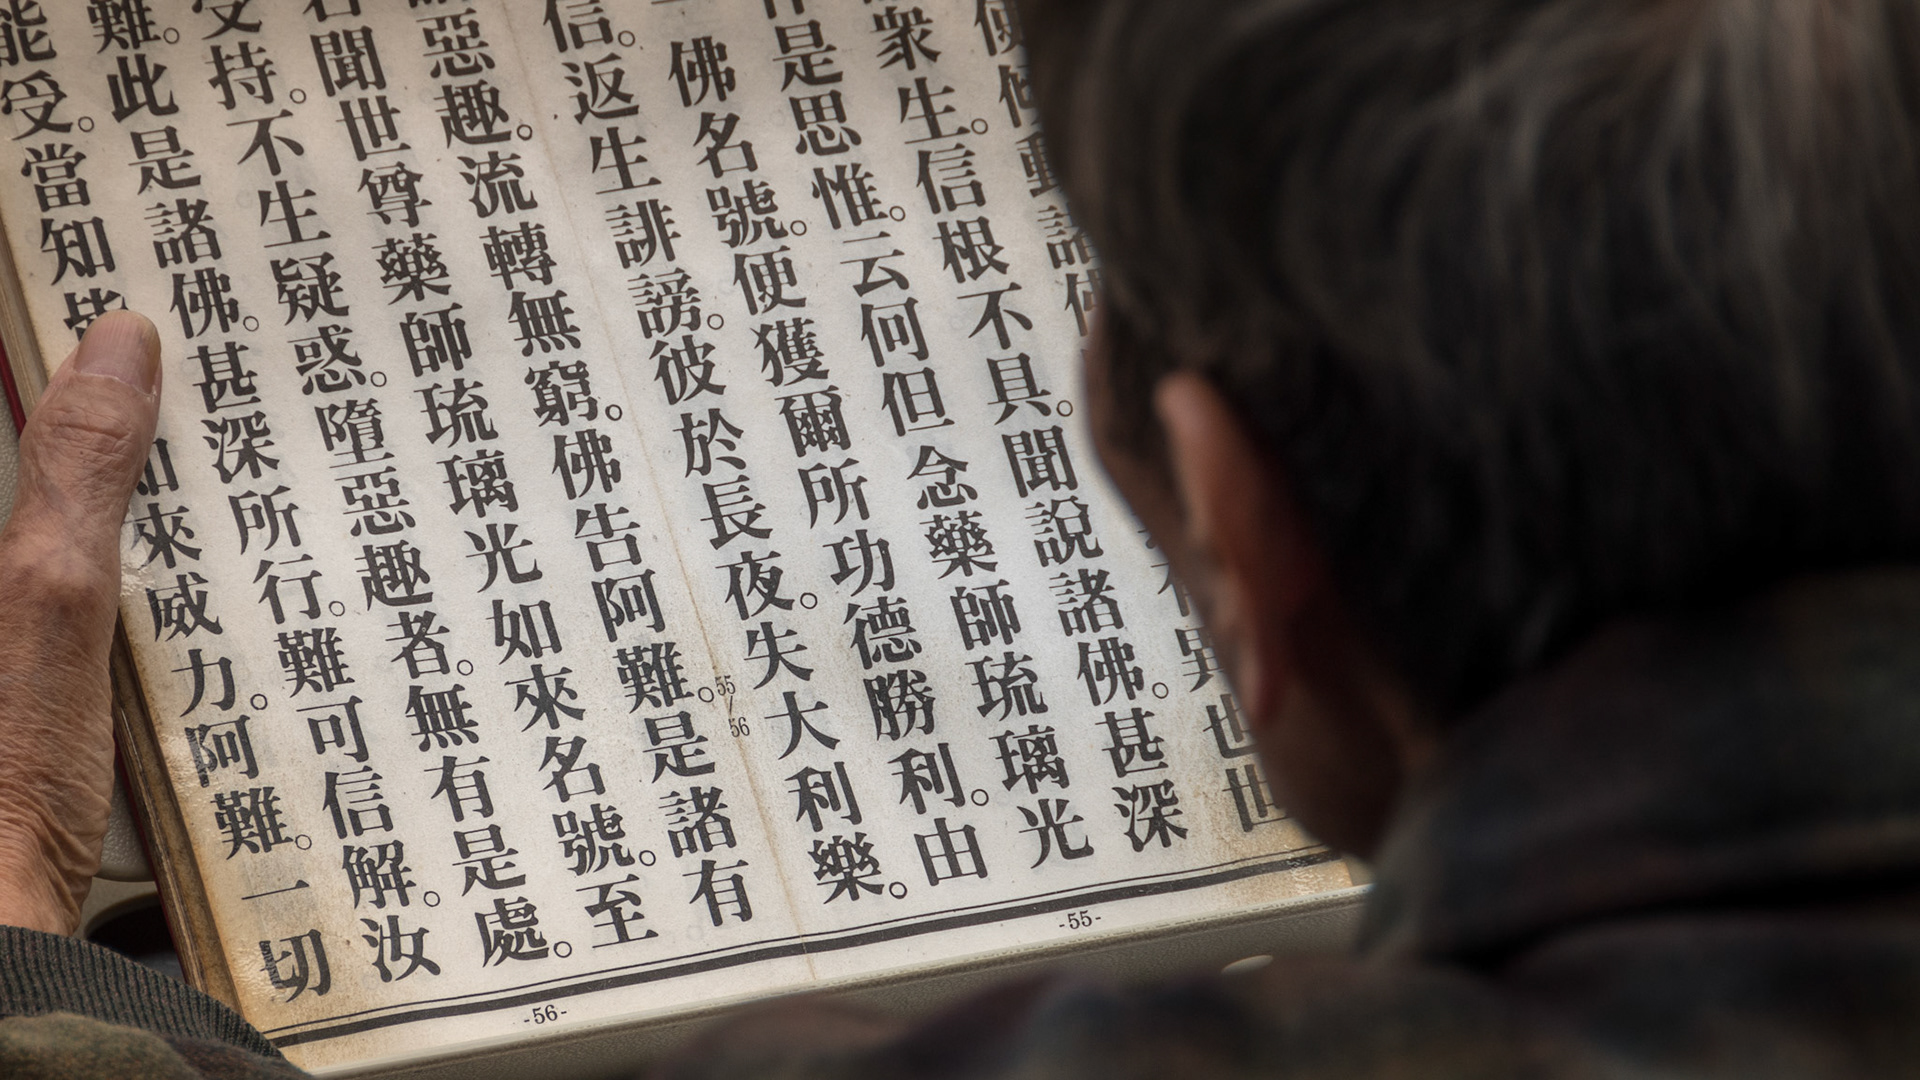 動諸異也世
衆生。信根不具。聞說諸佛。甚深
是思惟。云何但念藥師琉璃光
一佛名號。便獲爾所功德勝利。由
信。返生誹謗。彼於長夜。失大利樂。
55/56
惡趣。流轉無窮。佛告阿難。是諸有
聞世尊藥師琉璃光如來名號。至
受持。不生疑惑。墮惡趣者。無有是處。
難。此是諸佛。甚深所行。難可信解。汝
能受。當知如來威力。阿難。一切
-55-
-56-